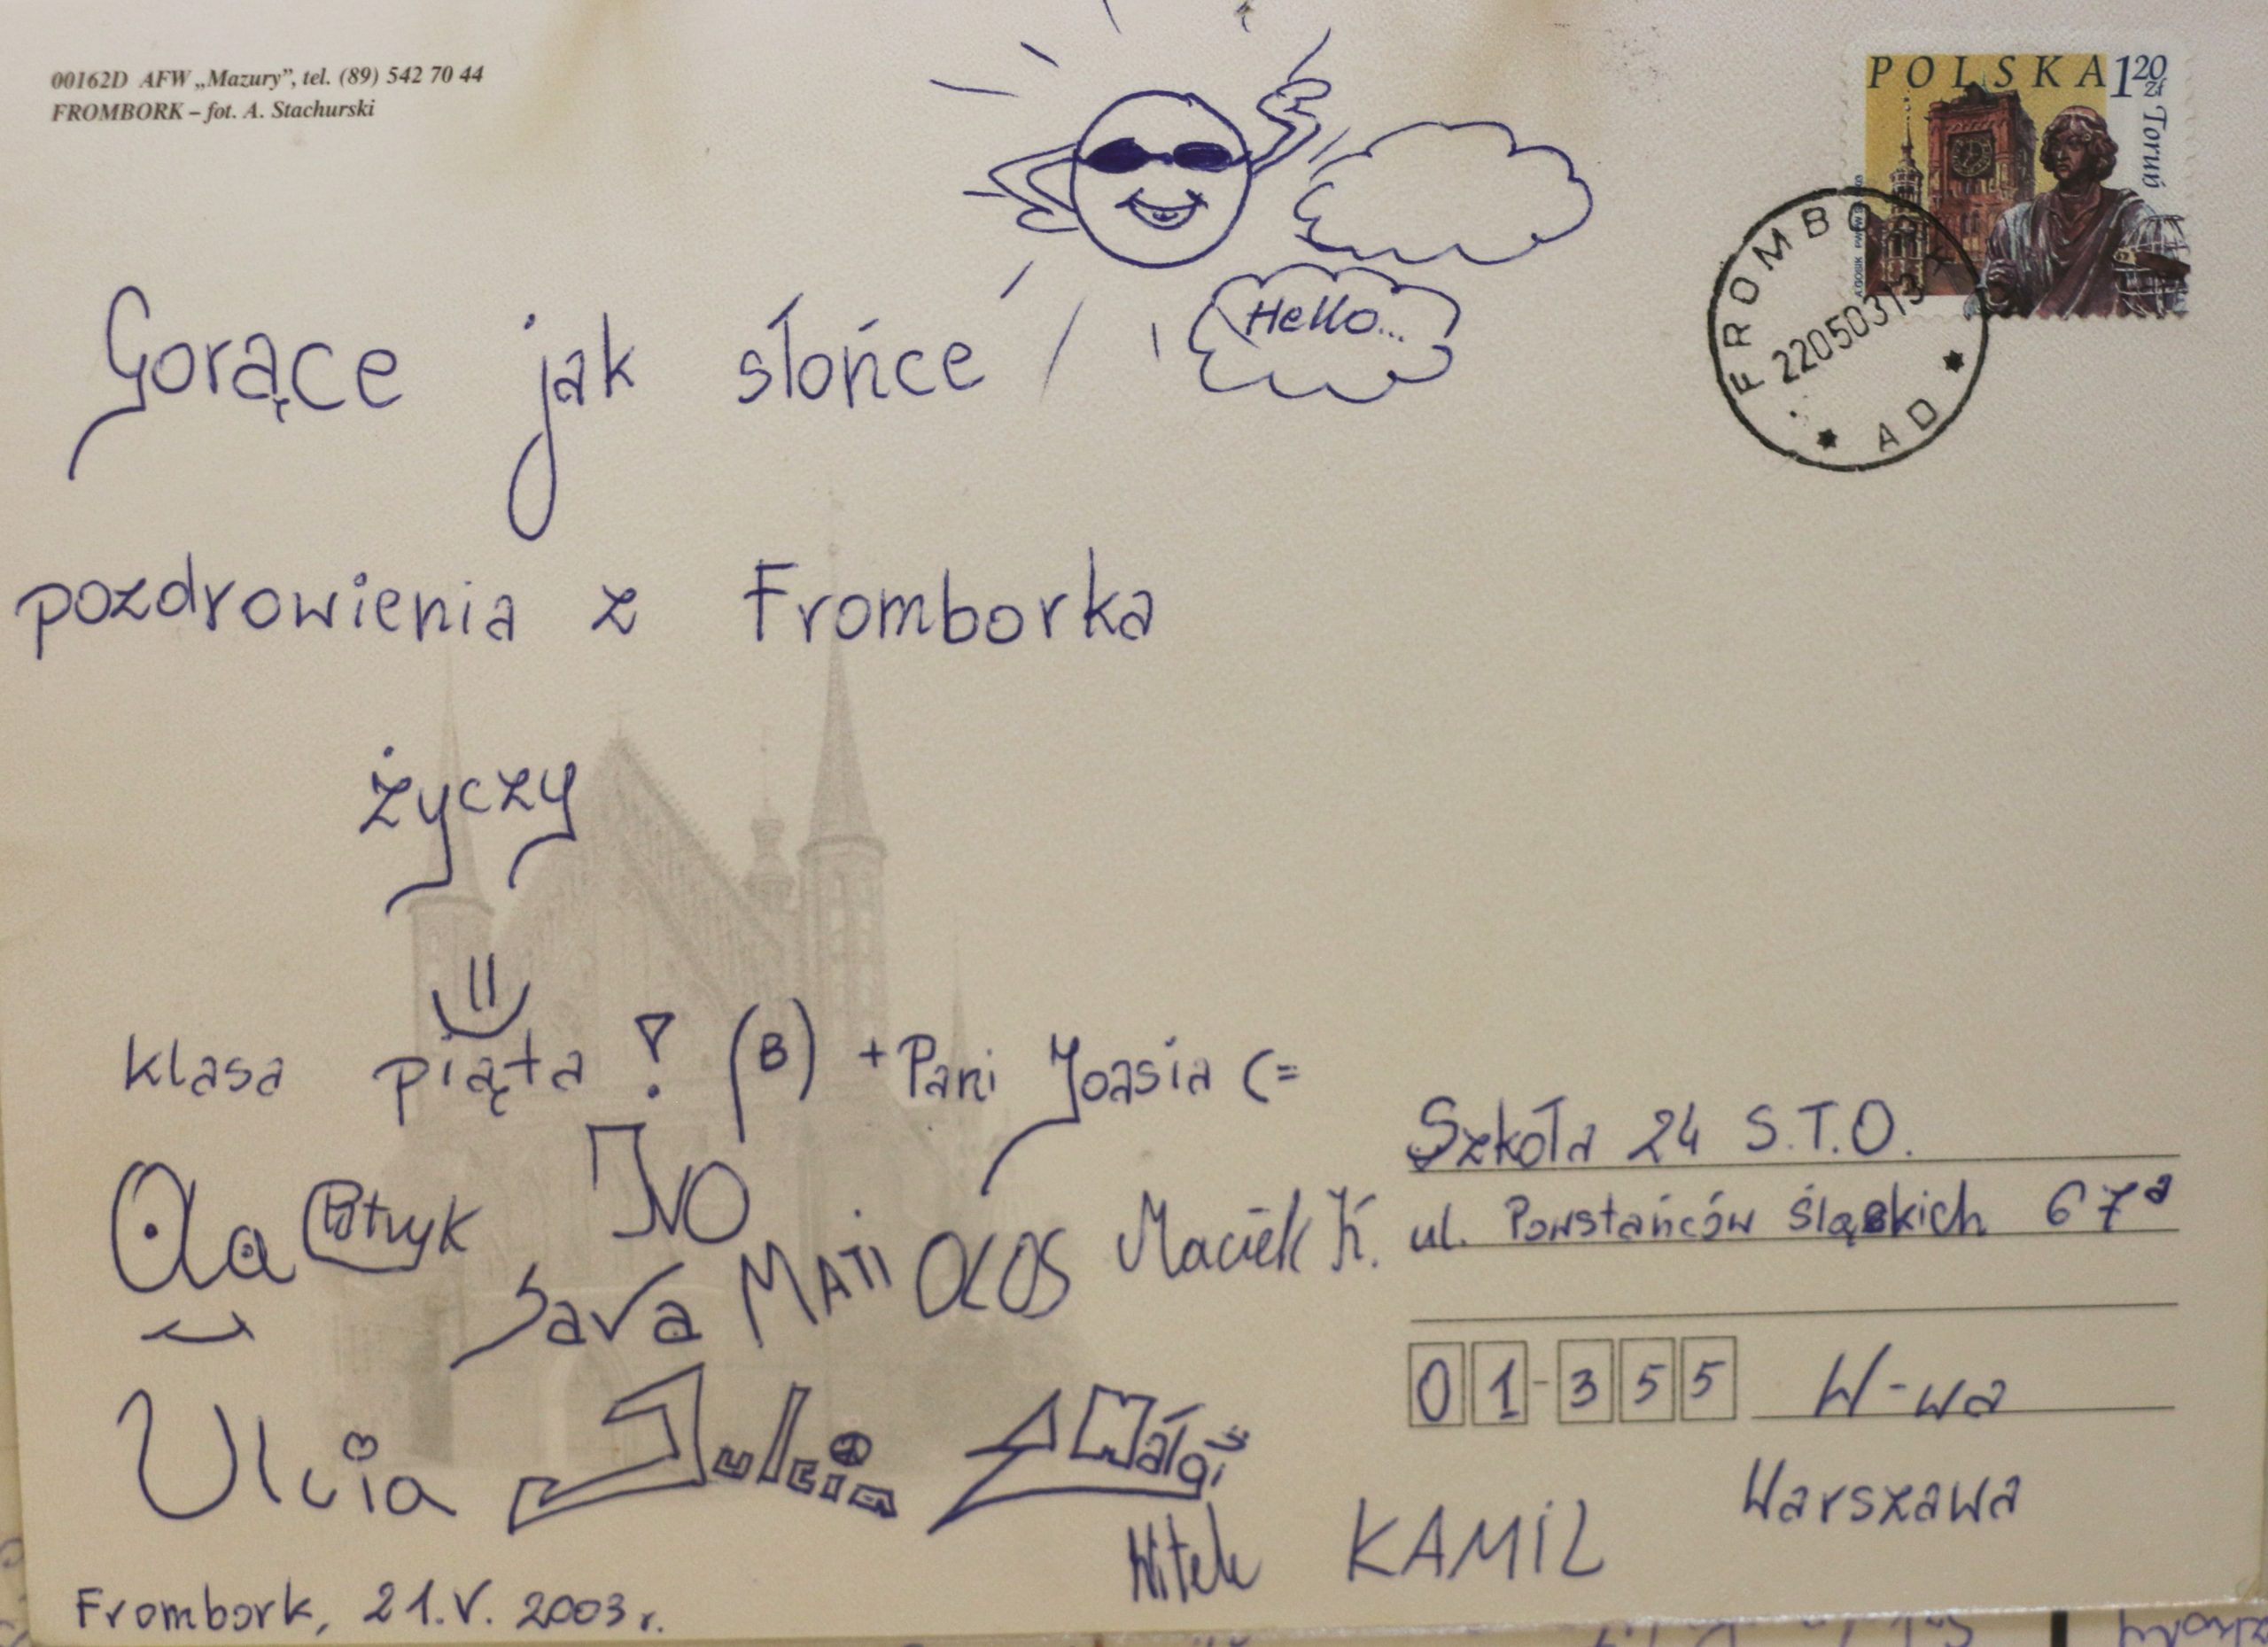 00162D AFW „Mazury”, tel. (89) 542 70 44
FROMBORK – fot. A. Stachurski
POLSKA 1 20 zł
Toruń
FROMBO
22050313
AD
Hello...
Gorące jak słońce
pozdrowienia z Fromborka
życzy
klasa piąta! (B) + Pani Joasia (=
Ola Patryk IVO
Sara MATI OLOS Maciek K.
Ulcia Julcia Małgi
Witek KAMIL
Frombork, 21.V.2003 r.
Szkoła 24 S.T.O.
ul. Powstańców Śląskich 67a
01-355 W-wa
Warszawa